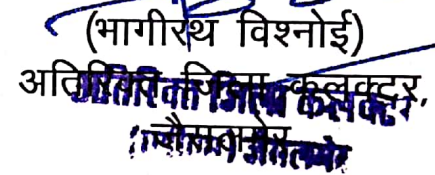 (भागीरथ विश्नोई)
अतिरिक्त जिला कलक्टर,
जैसलमेर
अतिरिक्त जिला कलक्टर
जैसलमेर